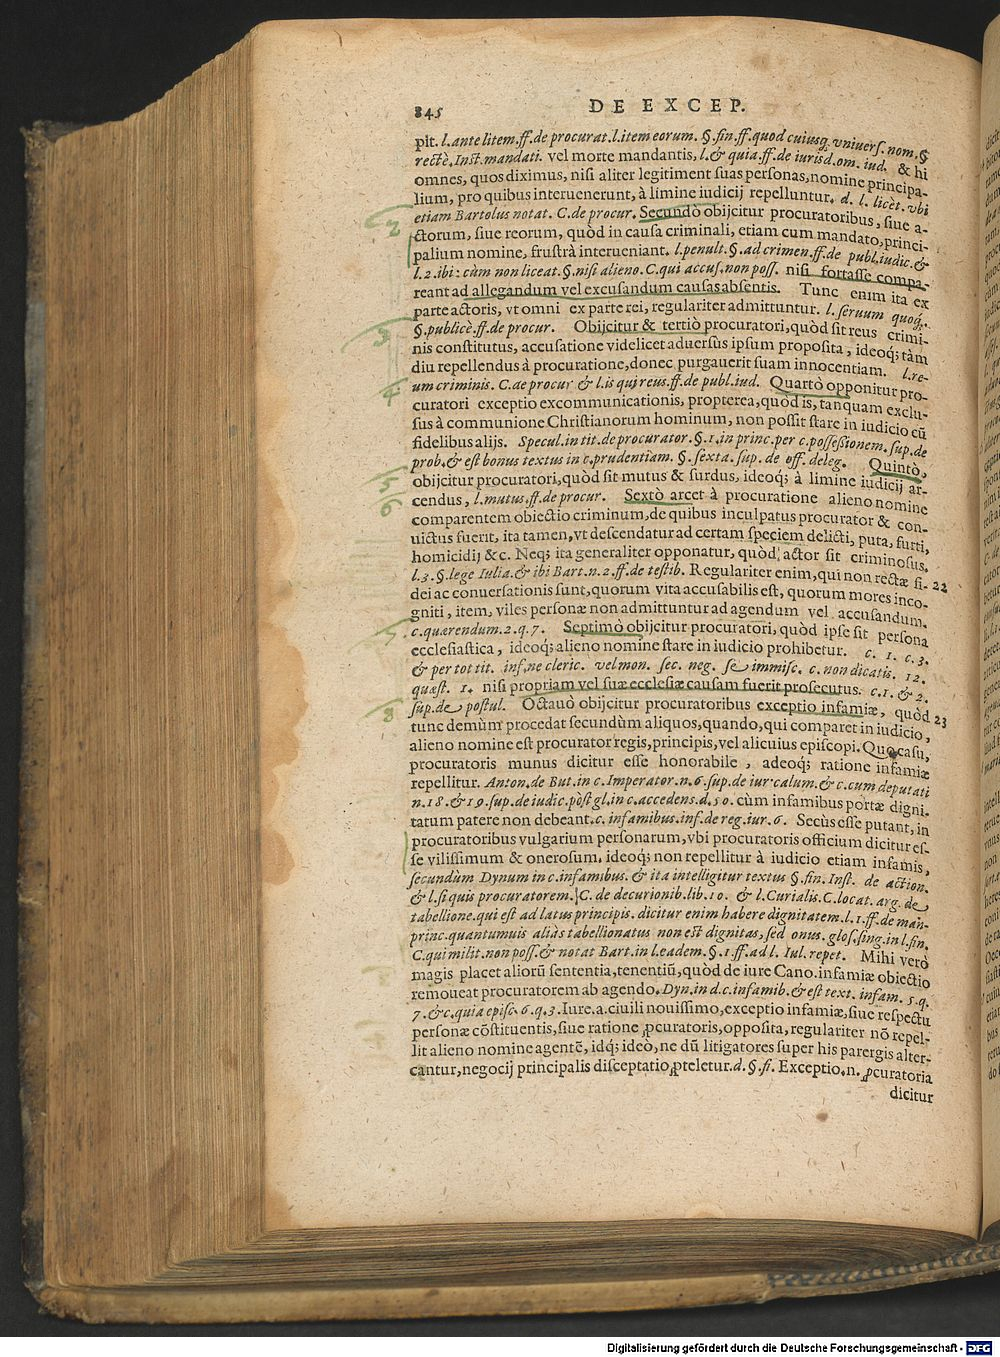 845 DE EXCEP.
pit. l. ante litem. ff. de procurat. l. item eorum. §. fin. ff. quod cuiusq. vniuers. nom. §
rectè. Inst. mandati. vel morte mandantis, l. & quia. ff. de iurisd. om. iud. & hi
omnes, quos diximus, nisi aliter legitiment suas personas, nomine principa-
lium, pro quibus interuenerunt, à limine iudicij repelluntur. d. l. licèt. vbi
etiam Bartolus notat. C. de procur. Secundò obijcitur procuratoribus, siue a-
2
ctorum, siue reorum, quòd in causa criminali, etiam cum mandato, princi-
palium nomine, frustrà interueniant. l. penult. §. ad crimen. ff. de publ. iudic. &
l. 2. ibi: cùm non liceat. §. nisi alieno. C. qui accus. non poss. nisi fortasse compa-
reant ad allegandum vel excusandum causas absentis. Tunc enim ita ex
parte actoris, vt omni ex parte rei, regulariter admittuntur. l. seruum quoq;.
§. publicè. ff. de procur. Obijcitur & tertiò procuratori, quòd sit reus crimi-
3
nis constitutus, accusatione videlicet aduersus ipsum proposita, ideoq; tàm
diu repellendus à procuratione, donec purgauerit suam innocentiam. l. re-
um criminis. C. ae procur & l. is qui reus. ff. de publ. iud. Quartò opponitur pro-
4
curatori exceptio excommunicationis, propterea, quòd is, tanquam exclu-
sus à communione Christianorum hominum, non possit stare in iudicio cũ
fidelibus alijs. Specul. in tit. de procurator. §. 1. in princ. per c. possessionem. sup. de
prob. & est bonus textus in c. prudentiam. §. sexta. sup. de off. deleg. Quintò,
5
obijcitur procuratori, quòd sit mutus & surdus, ideoq; à limine iudicij ar-
cendus, l. mutus. ff. de procur. Sextò arcet à procuratione alieno nomine
6
comparentem obiectio criminum, de quibus inculpatus procurator & con-
uictus fuerit, ita tamen, vt descendatur ad certam speciem delicti, puta, furti,
homicidij &c. Neq; ita generaliter opponatur, quòd actor sit criminosus.
l. 3. §. lege Iulia. & ibi Bart. n. 2. ff. de testib. Regulariter enim, qui non rectæ fi- 22
dei ac conuersationis sunt, quorum vita accusabilis est, quorum mores inco-
gniti, item, viles personæ non admittuntur ad agendum vel accusandum.
c. quærendum. 2. q. 7. Septimò obijcitur procuratori, quòd ipse sit persona
7
ecclesiastica, ideoq; alieno nomine stare in iudicio prohibetur. c. 1. c. 3.
& per tot tit. inf. ne cleric. vel mon. sec. neg. se immisc. c. non dicatis. 12.
quæst. 1. nisi propriam vel suæ ecclesiæ causam fuerit prosecutus. c. 1. & 2.
sup. de postul. Octauò obijcitur procuratoribus exceptio infamiæ, quòd 23
8
tunc demùm procedat secundùm aliquos, quando, qui comparet in iudicio,
alieno nomine est procurator regis, principis, vel alicuius episcopi. Quo casu,
procuratoris munus dicitur esse honorabile, adeoq; ratione infamiæ
repellitur. Anton. de But. in c. Imperator. n. 6. sup. de iur calum. & c. cum deputati
n. 18. & 19. sup. de iudic. post gl. in c. accedens. d. 50. cùm infamibus portæ digni-
tatum patere non debeant. c. infamibus. inf. de reg. iur. 6. Secùs esse putant, in
procuratoribus vulgarium personarum, vbi procuratoris officium dicitur es-
se vilissimum & onerosum. ideoq; non repellitur à iudicio etiam infamis,
secundùm Dynum in c. infamibus. & ita intelligitur textus §. fin. Inst. de action.
& l. si quis procuratorem. C. de decurionib. lib. 10. & l. Curialis. C. locat. arg. de
tabellione. qui est ad latus principis. dicitur enim habere dignitatem. l. 1. ff. de man-
princ. quantumuis aliàs tabellionatus non est dignitas, sed onus. glos. sing. in l. fin.
C. qui milit. non poss. & notat Bart. in l. eadem. §. 1. ff. ad l. Iul. repet. Mihi verò
magis placet aliorũ sententia, tenentiũ, quòd de iure Cano. infamiæ obiectio
remoueat procuratorem ab agendo. Dyn. in d. c. infamib. & est text. infam. 5. q.
7. & c. quia episc. 6. q. 3. Iure. a. ciuili nouissimo, exceptio infamiæ, siue respectu
personæ cõstituentis, siue ratione ꝓcuratoris, opposita, regulariter nõ repel-
lit alieno nomine agentẽ, idq; ideò, ne dũ litigatores super his parergis alter-
cantur, negocij principalis disceptatio ꝓteletur. d. §. fi. Exceptio. n. ꝓcuratoria
dicitur
Digitalisierung gefördert durch die Deutsche Forschungsgemeinschaft - DFG